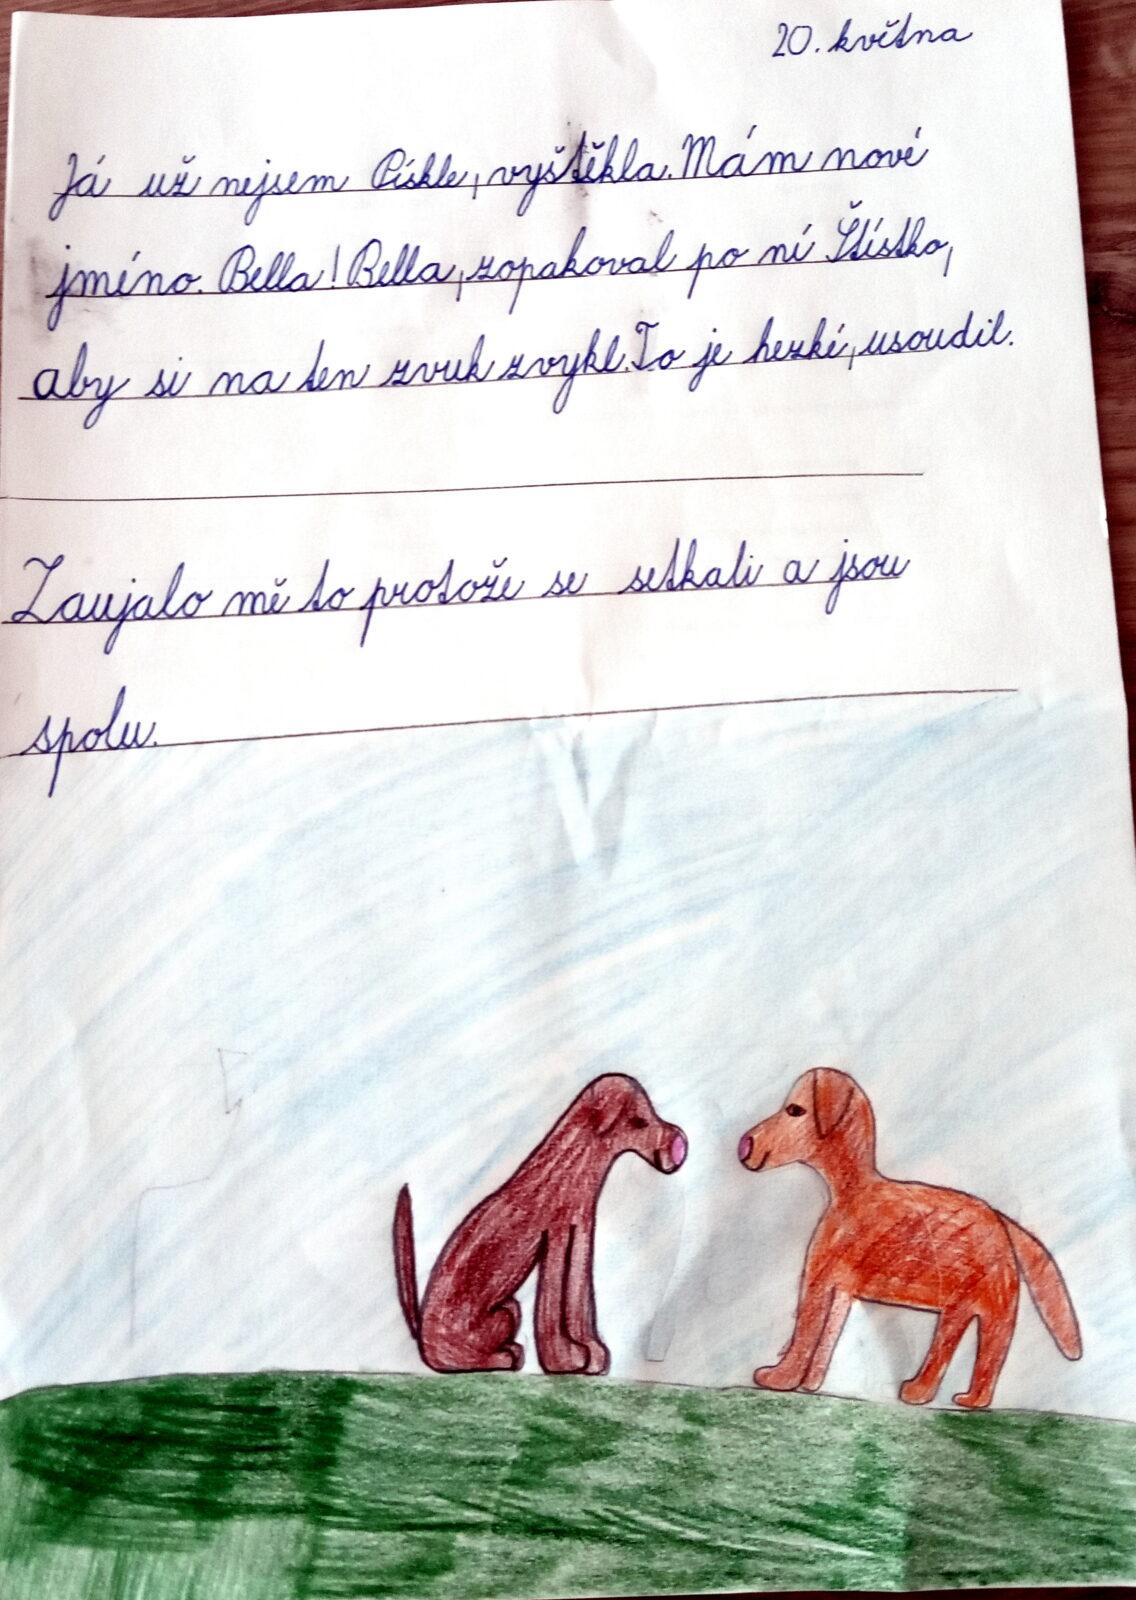 20. května
Já už nejsem Pískle, vyštěkla. Mám nové
jméno. Bella! Bella, zopakoval po ní Štístko,
aby si na ten zvuk zvykl. To je hezké, usoudil.
Zaujalo mě to protože se setkali a jsou
spolu.